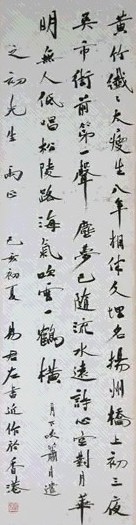 黄竹纖々大瘦生八年相伴久埋名揚州橋上初三夜
吳市街前第一聲塵夢已隨流水遠詩心空對月華
明無人低唱松陵路海氣吹雲一鶴橫
月下吹簫月遣
之初先生兩正
己亥初夏 易君左書近作於香港